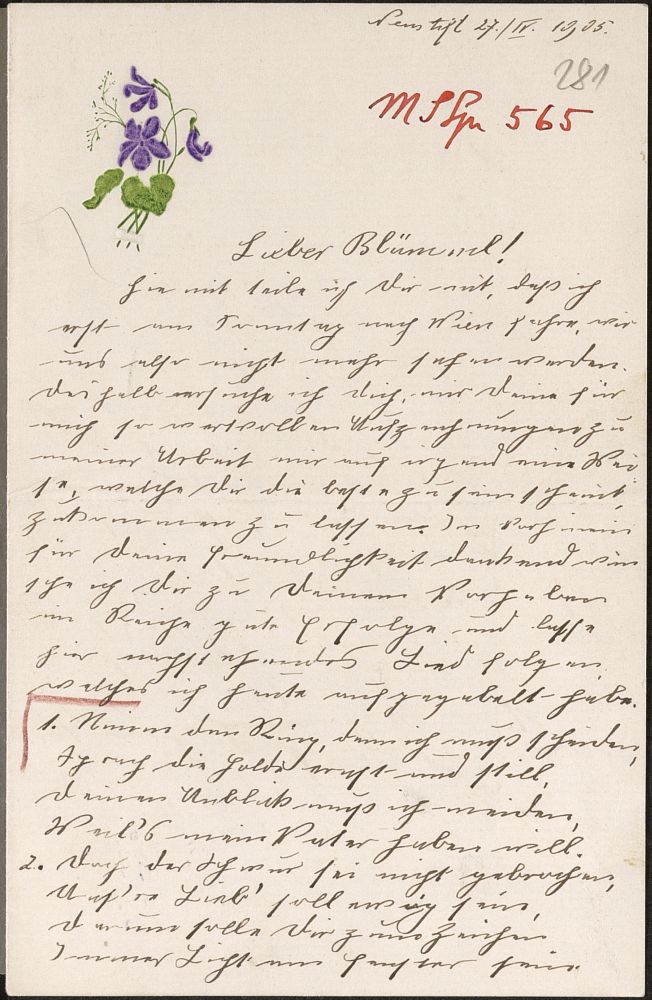 Neustift 27./IV. 1905.
281
MS Spr 565
Lieber Blümml!
Hie mit teile ich Dir mit, daß ich
erst am Sonntag nach Wien fahre, wir
uns also nicht mehr sehen werden.
Deshalb ersuche ich Dich, mir Deine für
mich so wertvollen Aufzeichnungen zu
meiner Arbeit mir auf irgend eine Wei
se, welche Dir die beste zu sein scheint,
zukommen zu lassen. Im Vorhinein
für Deine Freundlichkeit dankend wün
sche ich Dir zu Deinem Vorhaben
im Reiche gute Erfolge und lasse
hier nachstehendes Lied folgen,
welches ich heute aufgegabelt habe.
1. Nimm den Ring, denn ich muß scheiden,
Sprach die Holde ernst und still,
Deinen Anblick muß ich meiden,
Weil's mein Vater haben will.
2. Doch der Schwur sei nicht gebrochen,
Uns're Lieb' soll ewig sein,
Darum solle Dir zum Zeichen
Immer Licht am Fenster sein.